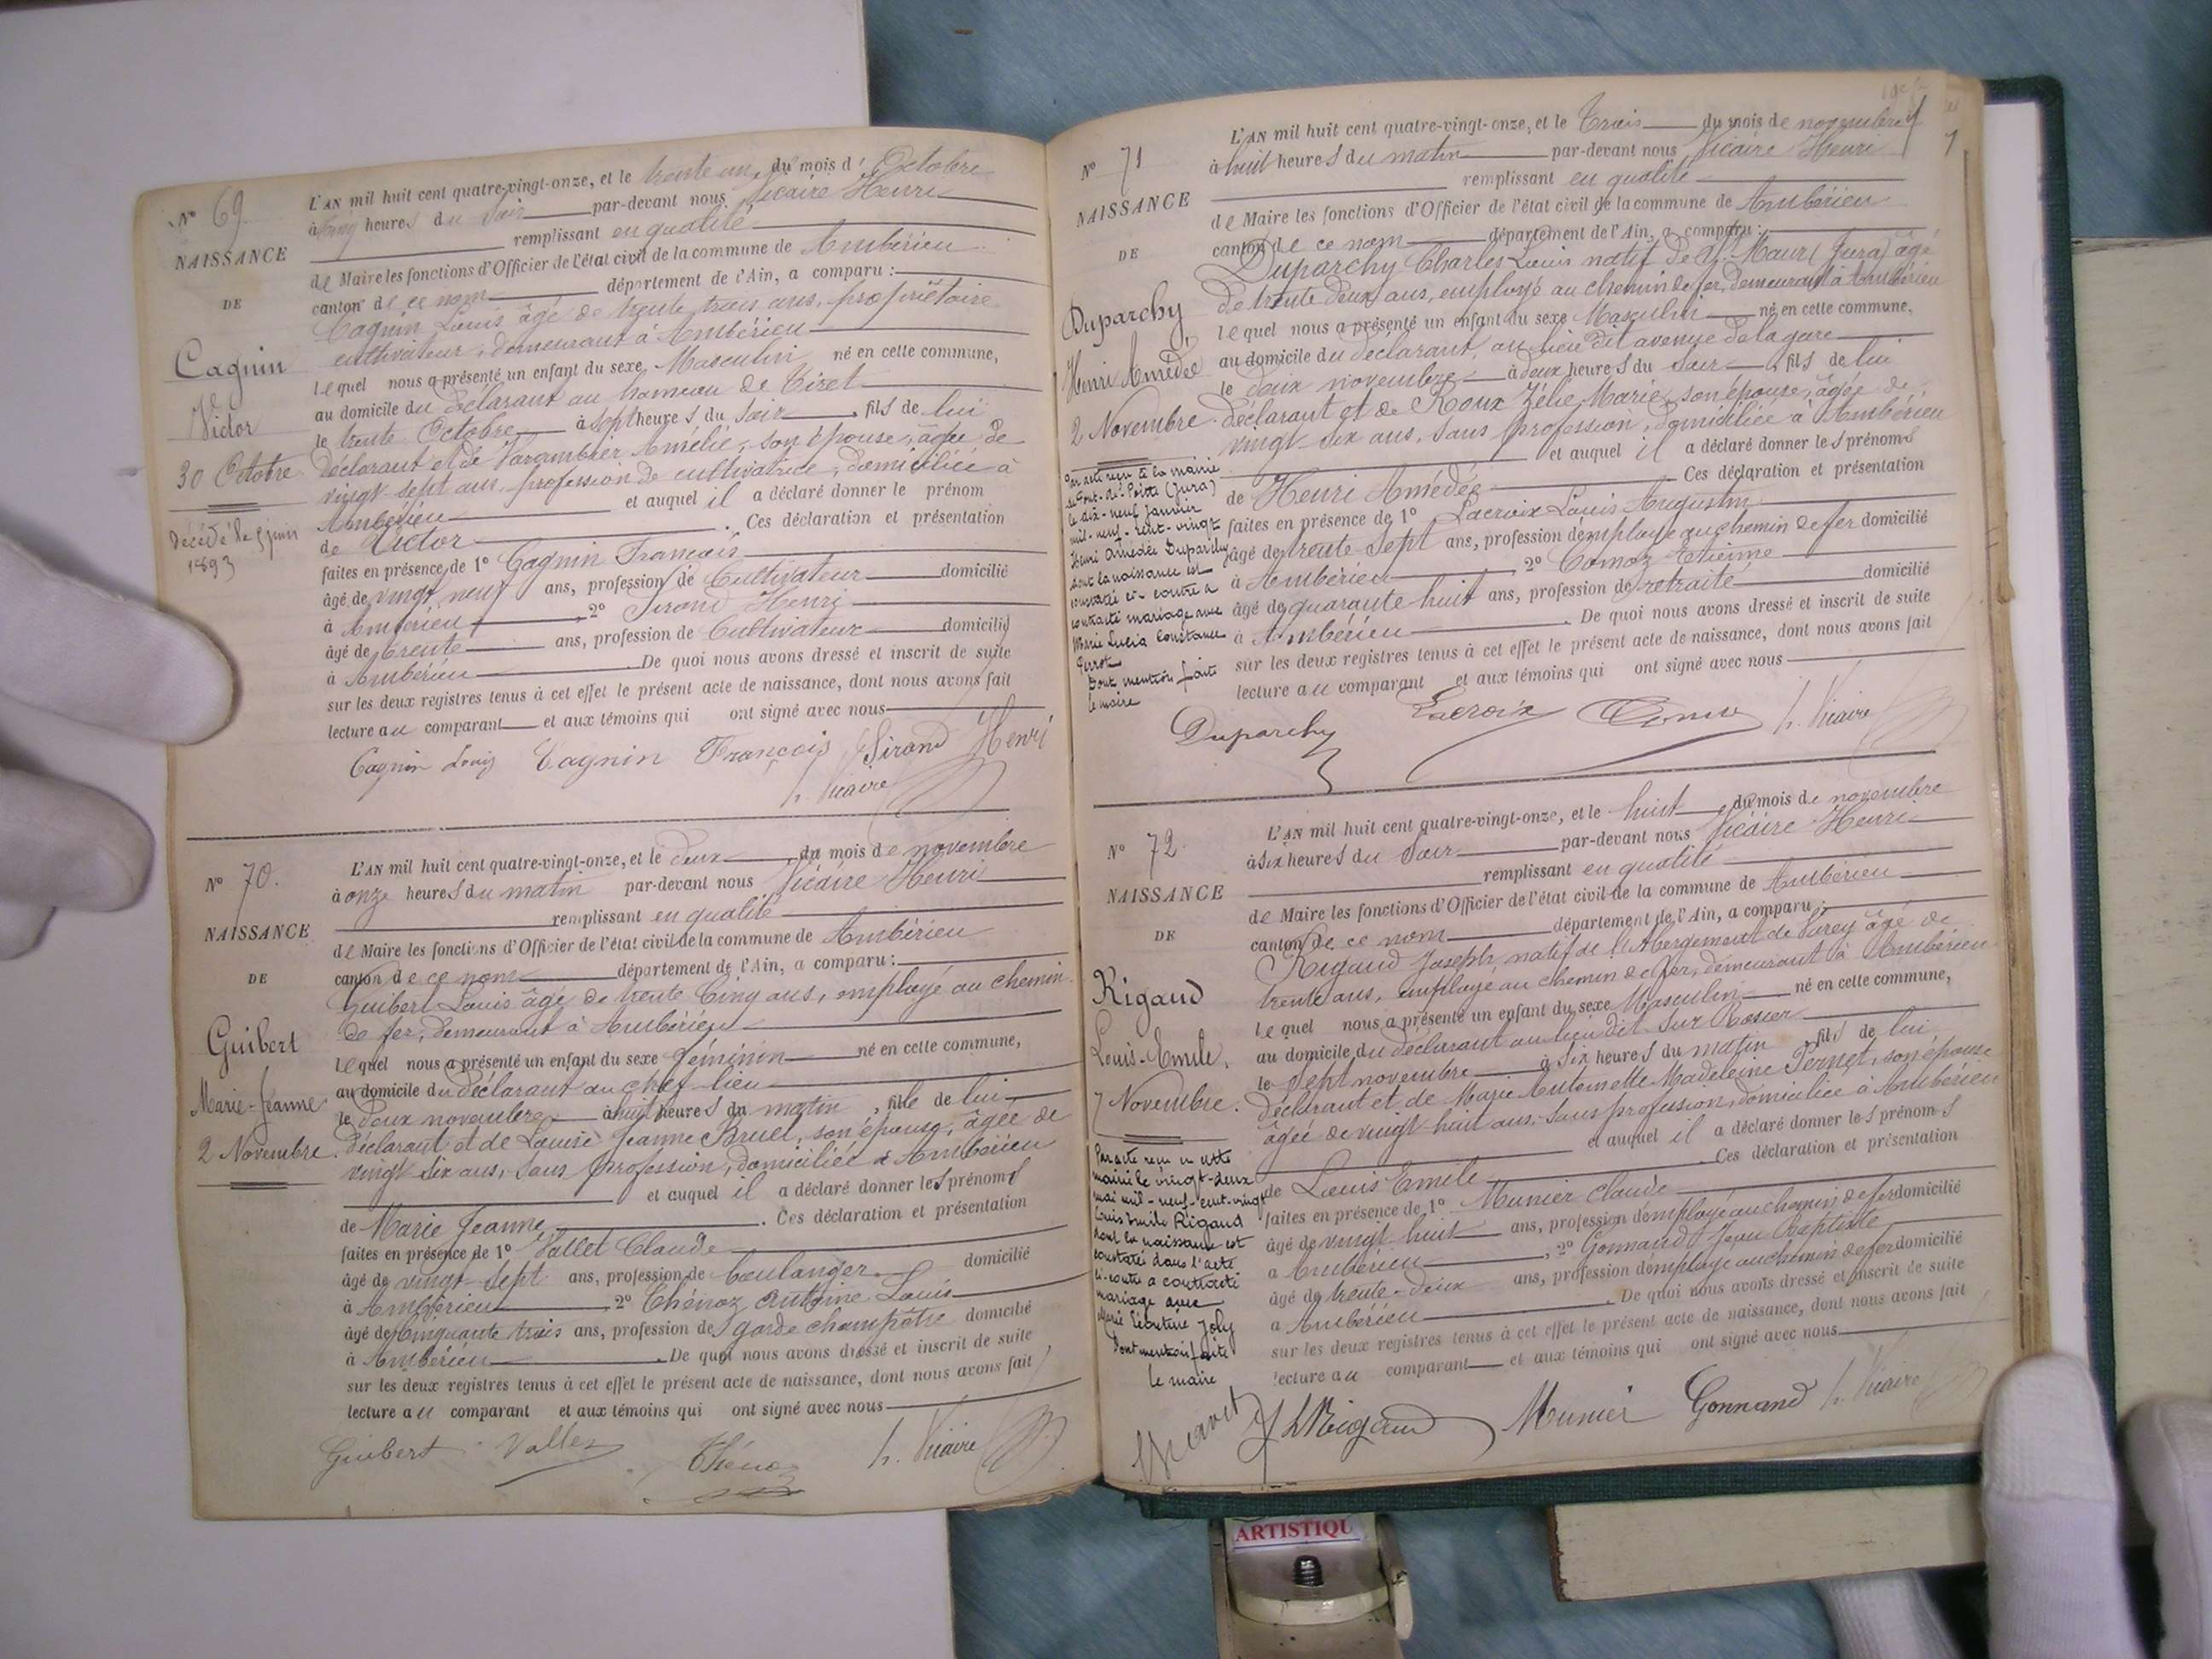 N° 69.
NAISSANCE
DE
Cagnin
Victor
30 Octobre
Décédé le 5 juin
1893
L'AN mil huit cent quatre-vingt-onze, et le trente un du mois d' Octobre
à cinq heures du Soir par-devant nous Vicaire Henri
remplissant en qualité
de Maire les fonctions d'Officier de l'état civil de la commune de Ambérieu
canton de ce nom département de l'Ain, a comparu :
Cagnin Louis âgé de trente trois ans, propriétaire
cultivateur, demeurant à Ambérieu
lequel nous a présenté un enfant du sexe Masculin né en cette commune,
au domicile du déclarant au hameau de Tiret
le trente Octobre à sept heures du Soir, fils de lui
déclarant et de Varambier Amélie, son épouse, âgée de
vingt-sept ans profession de cultivatrice, domiciliée à
Ambérieu et auquel il a déclaré donner le prénom
de Victor. Ces déclaration et présentation
faites en présence de 1° Cagnin François
âgé de vingt neuf ans, profession de Cultivateur domicilié
à Ambérieu, 2° Sirand Henri
âgé de trente ans, profession de Cultivateur domicilié
à Ambérieu. De quoi nous avons dressé et inscrit de suite
sur les deux registres tenus à cet effet le présent acte de naissance, dont nous avons fait
lecture au comparant et aux témoins qui ont signé avec nous
Cagnin Louis Cagnin François Sirand Henri
h. Vicaire
N° 70.
NAISSANCE
DE
Guibert
Marie-Jeanne
2 Novembre.
L'AN mil huit cent quatre-vingt-onze, et le deux du mois de novembre
à onze heures du matin par-devant nous Vicaire Henri
remplissant en qualité
de Maire les fonctions d'Officier de l'état civil de la commune de Ambérieu
canton de ce nom département de l'Ain, a comparu :
Guibert Louis âgé de trente Cinq ans, employé au chemin
de fer, demeurant à Ambérieu
lequel nous a présenté un enfant du sexe féminin né en cette commune,
au domicile du déclarant au chef-lieu
le deux novembre à huit heures du matin, fille de lui
déclarant et de Louise Jeanne Bruel, son épouse, âgée de
vingt-six ans, sans profession, domiciliée à Ambérieu
et auquel il a déclaré donner les prénoms
de Marie Jeanne. Ces déclaration et présentation
faites en présence de 1° Vallet Claude
âgé de vingt-sept ans, profession de boulanger domicilié
à Ambérieu, 2° Thénoz Antoine Louis
âgé de Cinquante trois ans, profession de garde champêtre domicilié
à Ambérieu. De quoi nous avons dressé et inscrit de suite
sur les deux registres tenus à cet effet le présent acte de naissance, dont nous avons fait
lecture au comparant et aux témoins qui ont signé avec nous
Guibert Vallet Thénoz h. Vicaire
N° 71
NAISSANCE
DE
Duparchy
Henri Amédée
2 Novembre.
Par acte reçu à la mairie
de Pont-de-Poitte (Jura)
le dix-neuf janvier
mil-neuf-cent-vingt
Henri Amédée Duparchy
dont la naissance est
constatée ci-contre a
contracté mariage avec
Marie Lucia Constance
Perrot
Dont mention faite
le maire
L'AN mil huit cent quatre-vingt-onze, et le trois du mois de novembre
à huit heures du matin par-devant nous Vicaire Henri
remplissant en qualité
de Maire les fonctions d'Officier de l'état civil de la commune de Ambérieu
canton de ce nom département de l'Ain, a comparu :
Duparchy Charles Louis natif de St Maur (Jura) âgé
de trente deux ans, employé au chemin de fer, demeurant à Ambérieu
lequel nous a présenté un enfant du sexe Masculin né en cette commune,
au domicile du déclarant, au lieu dit avenue de la gare
le deux novembre à deux heures du Soir, fils de lui
déclarant et de Roux Zélie Marie, son épouse, âgée de
vingt-six ans, sans profession, domiciliée à Ambérieu
et auquel il a déclaré donner les prénoms
de Henri Amédée. Ces déclaration et présentation
faites en présence de 1° Lacroix Louis Augustin
âgé de trente sept ans, profession d'employé au chemin de fer domicilié
à Ambérieu, 2° Cornoz Etienne
âgé de quarante huit ans, profession de retraité domicilié
à Ambérieu. De quoi nous avons dressé et inscrit de suite
sur les deux registres tenus à cet effet le présent acte de naissance, dont nous avons fait
lecture au comparant et aux témoins qui ont signé avec nous
Duparchy Lacroix h. Vicaire
N° 72
NAISSANCE
DE
Rigaud
Louis-Emile.
7 Novembre.
Par acte reçu en cette
mairie le vingt-deux
mai mil-neuf-cent-vingt
Louis Emile Rigaud
dont la naissance est
constatée dans l'acte
ci-contre a contracté
mariage avec
Joly
Dont mention faite
le maire
L'AN mil huit cent quatre-vingt-onze, et le huit du mois de novembre
à six heures du Soir par-devant nous Vicaire Henri
remplissant en qualité
de Maire les fonctions d'Officier de l'état civil de la commune de Ambérieu
canton de ce nom département de l'Ain, a comparu :
Rigaud Joseph, natif de l'Abergement de Varey âgé de
trente ans, employé au chemin de fer, demeurant à Ambérieu
lequel nous a présenté un enfant du sexe Masculin né en cette commune,
au domicile du déclarant au lieu dit Sur Rosier
le sept novembre à six heures du matin fils de lui
déclarant et de Marie Antoinette Madeleine Pernet, son épouse
âgée de vingt huit ans, sans profession, domiciliée à Ambérieu
et auquel il a déclaré donner les prénoms
de Louis Emile. Ces déclaration et présentation
faites en présence de 1° Munier Claude
âgé de vingt huit ans, profession d'employé au chemin de fer domicilié
à Ambérieu, 2° Gonnand Jean Baptiste
âgé de trente-deux ans, profession d'employé au chemin de fer domicilié
à Ambérieu. De quoi nous avons dressé et inscrit de suite
sur les deux registres tenus à cet effet le présent acte de naissance, dont nous avons fait
lecture au comparant et aux témoins qui ont signé avec nous
Rigaud Munier Gonnand h. Vicaire
ARTISTIQU